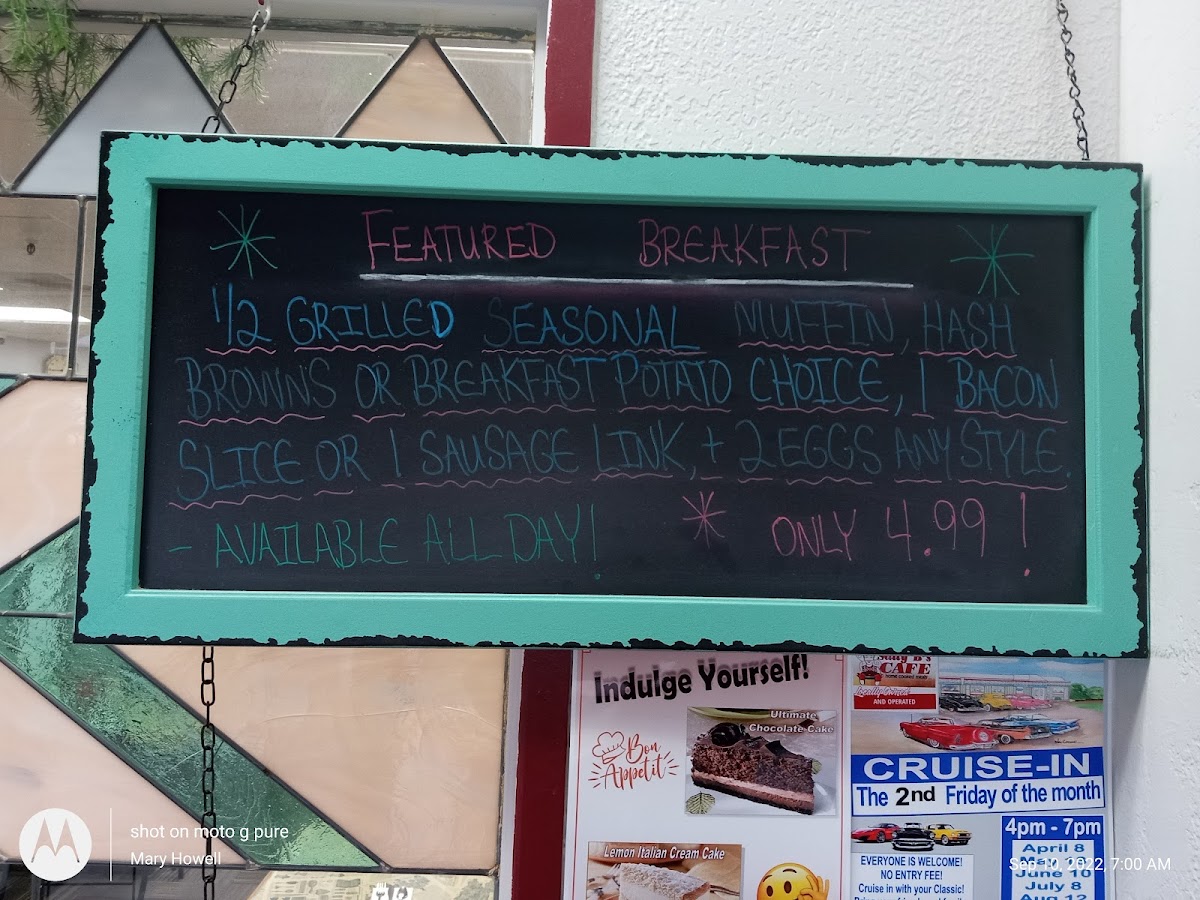 FEATURED BREAKFAST
1/2 GRILLED SEASONAL MUFFIN, HASH
BROWNS OR BREAKFAST POTATO CHOICE, 1 BACON
SLICE OR 1 SAUSAGE LINK, + 2 EGGS ANY STYLE.
- AVAILABLE ALL DAY! * ONLY 4.99!
Indulge Yourself!
Ultimate
Chocolate Cake
Bon
Appetit
Lemon Italian Cream Cake
CAFE
home cooked meals
Locally Owned
AND OPERATED
CRUISE-IN
The 2nd Friday of the month
4pm - 7pm
April 8
June 10
July 8
Aug 12
EVERYONE IS WELCOME!
NO ENTRY FEE!
Cruise in with your Classic!
shot on moto g pure
Mary Howell
Sep 10, 2022, 7:00 AM